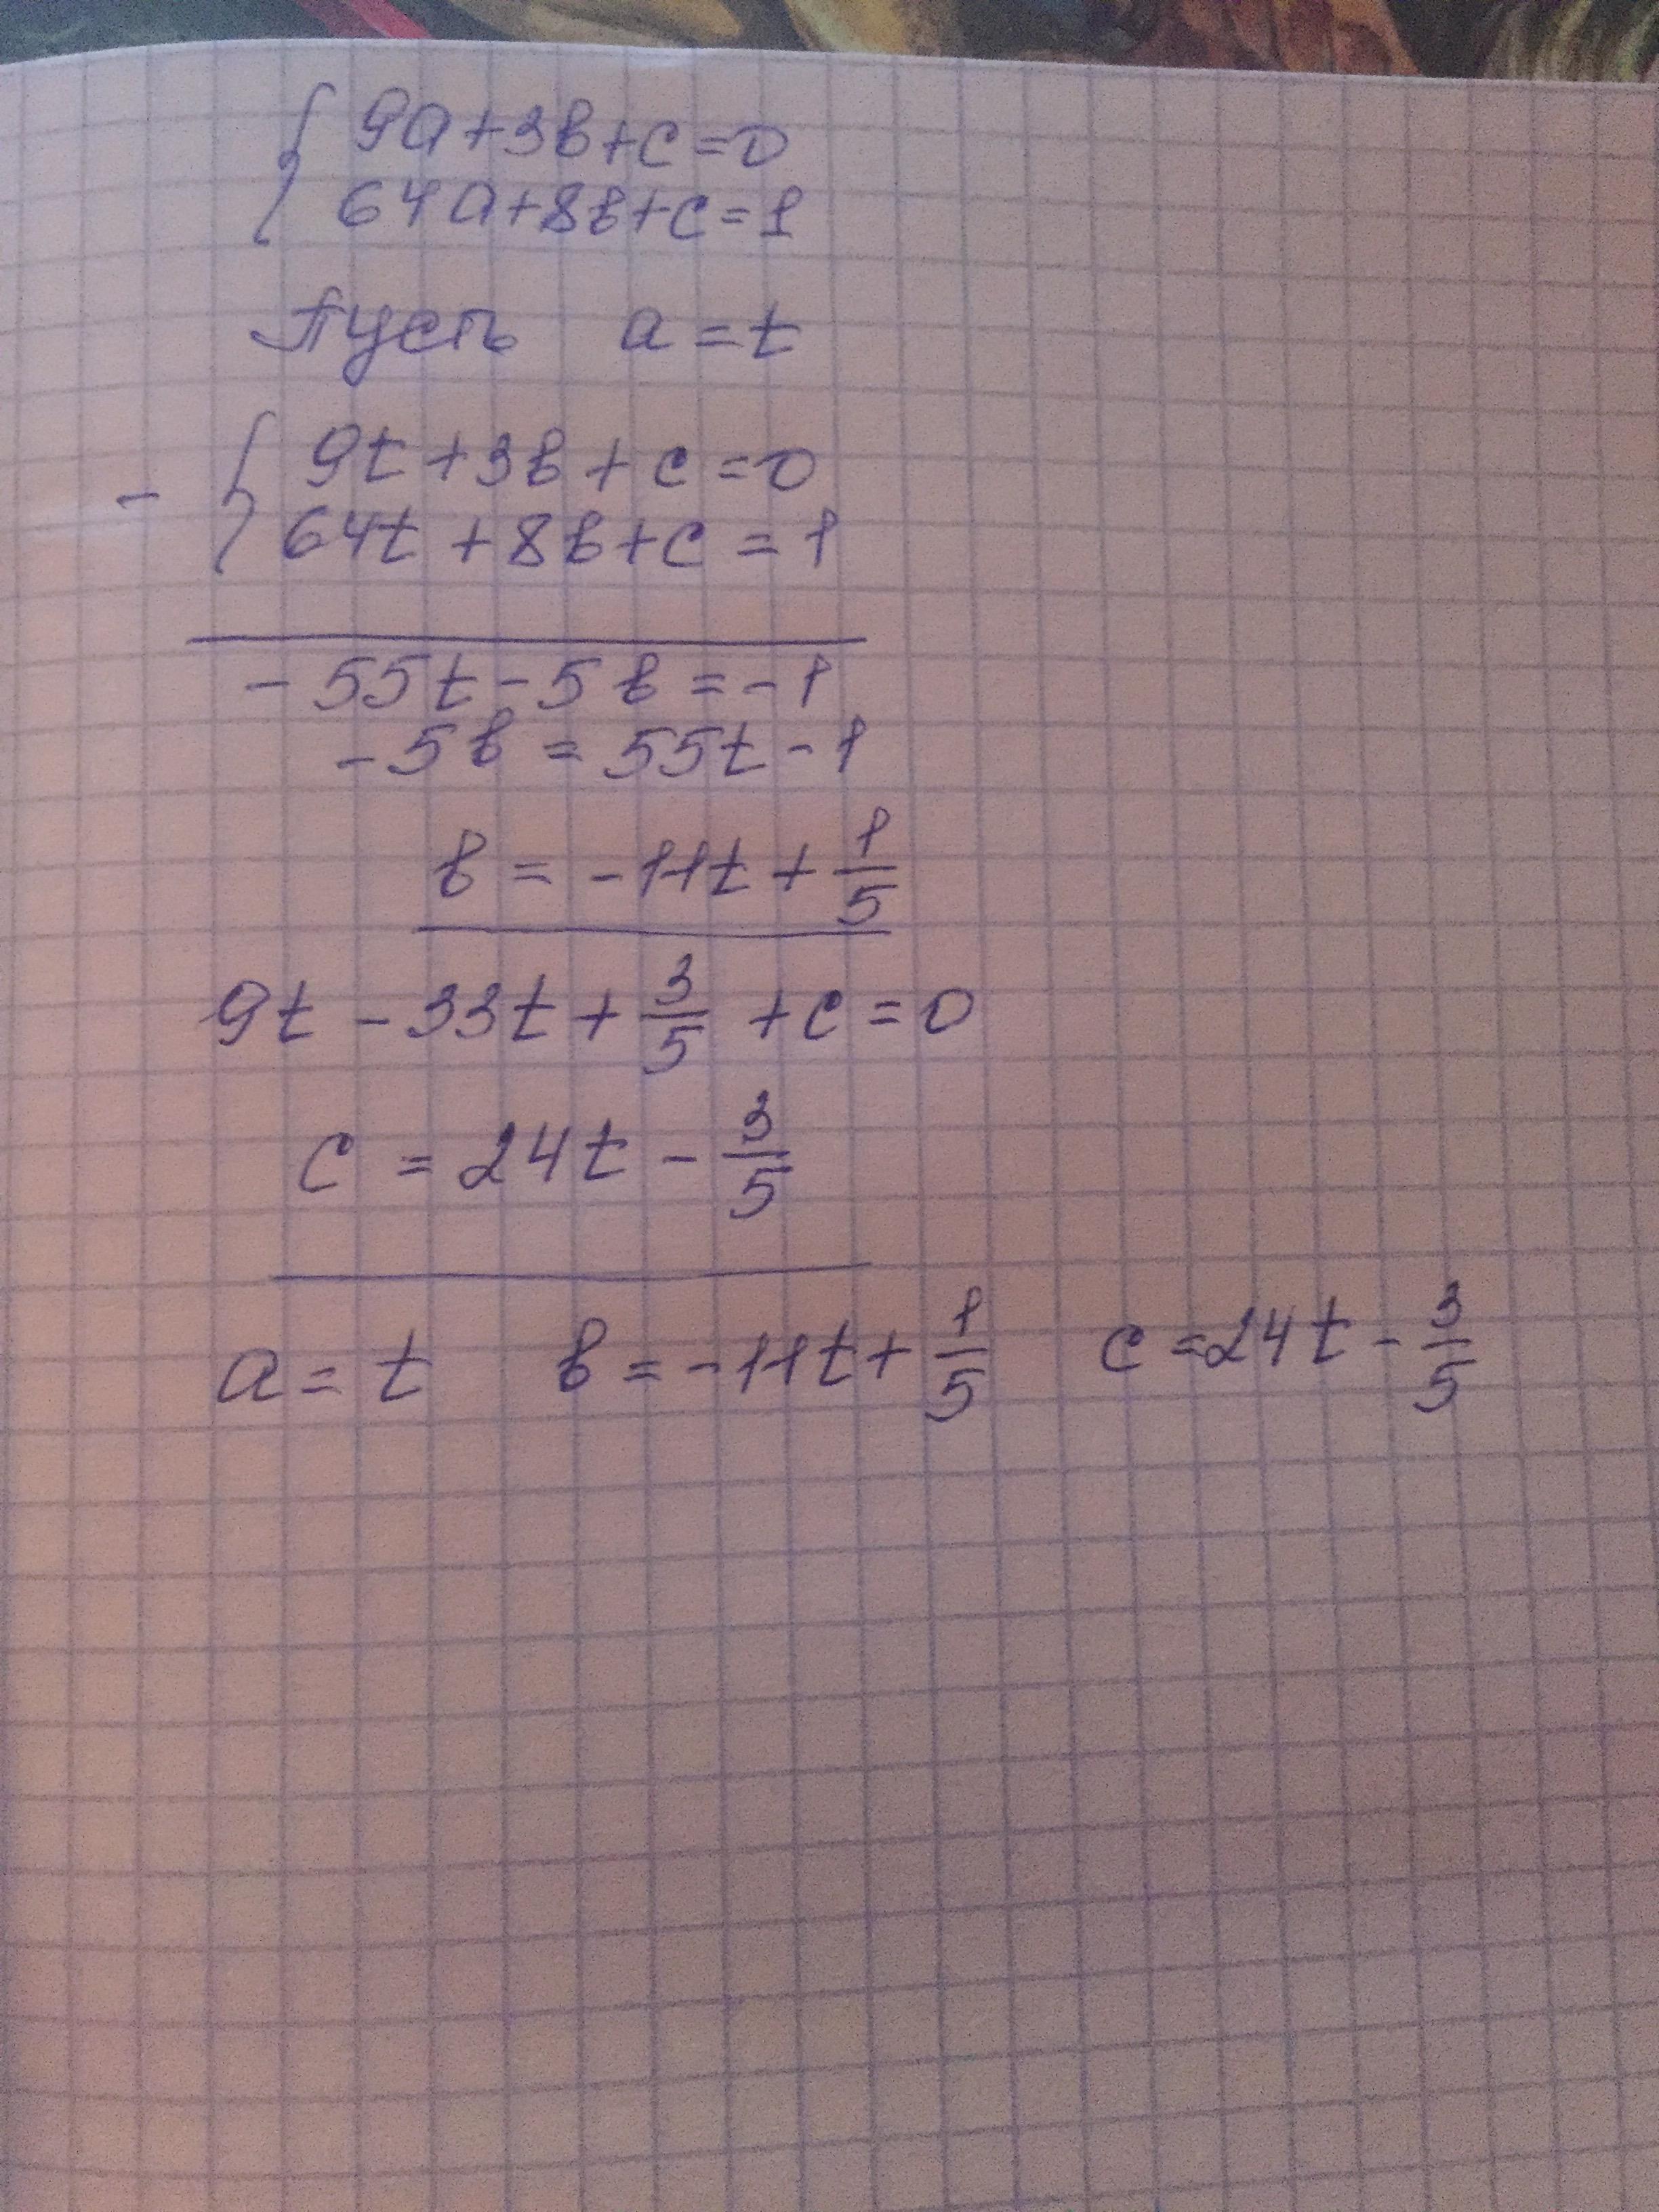 { 9a+3в+c=0
64a+8в+c=1
Пусть a=t
- { 9t+3в+c=0
64t+8в+c=1
-55t-5в=-1
-5в=55t-1
в=-11t+1/5
9t-33t+3/5+c=0
c=24t-3/5
a=t в=-11t+1/5 c=24t-3/5